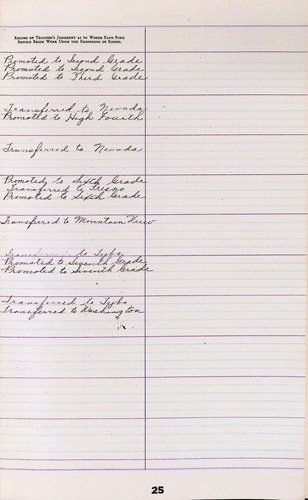 Record of Teacher's Judgment as to Where Each Pupil
Should Begin Work Upon the Reopening of School.
Promoted to Second Grade
Promoted to Second Grade
Promoted to Third Grade
Transferred to Nevada
Promoted to High Fourth
Transferred to Nevada
Promoted to Sixth Grade
Transferred to Fresno
Promoted to Sixth Grade
Transferred to Mountain View
Transferred to Tybo
Promoted to Seventh Grade
Promoted to Seventh Grade
Transferred to Tybo
Transferred to Washington
25